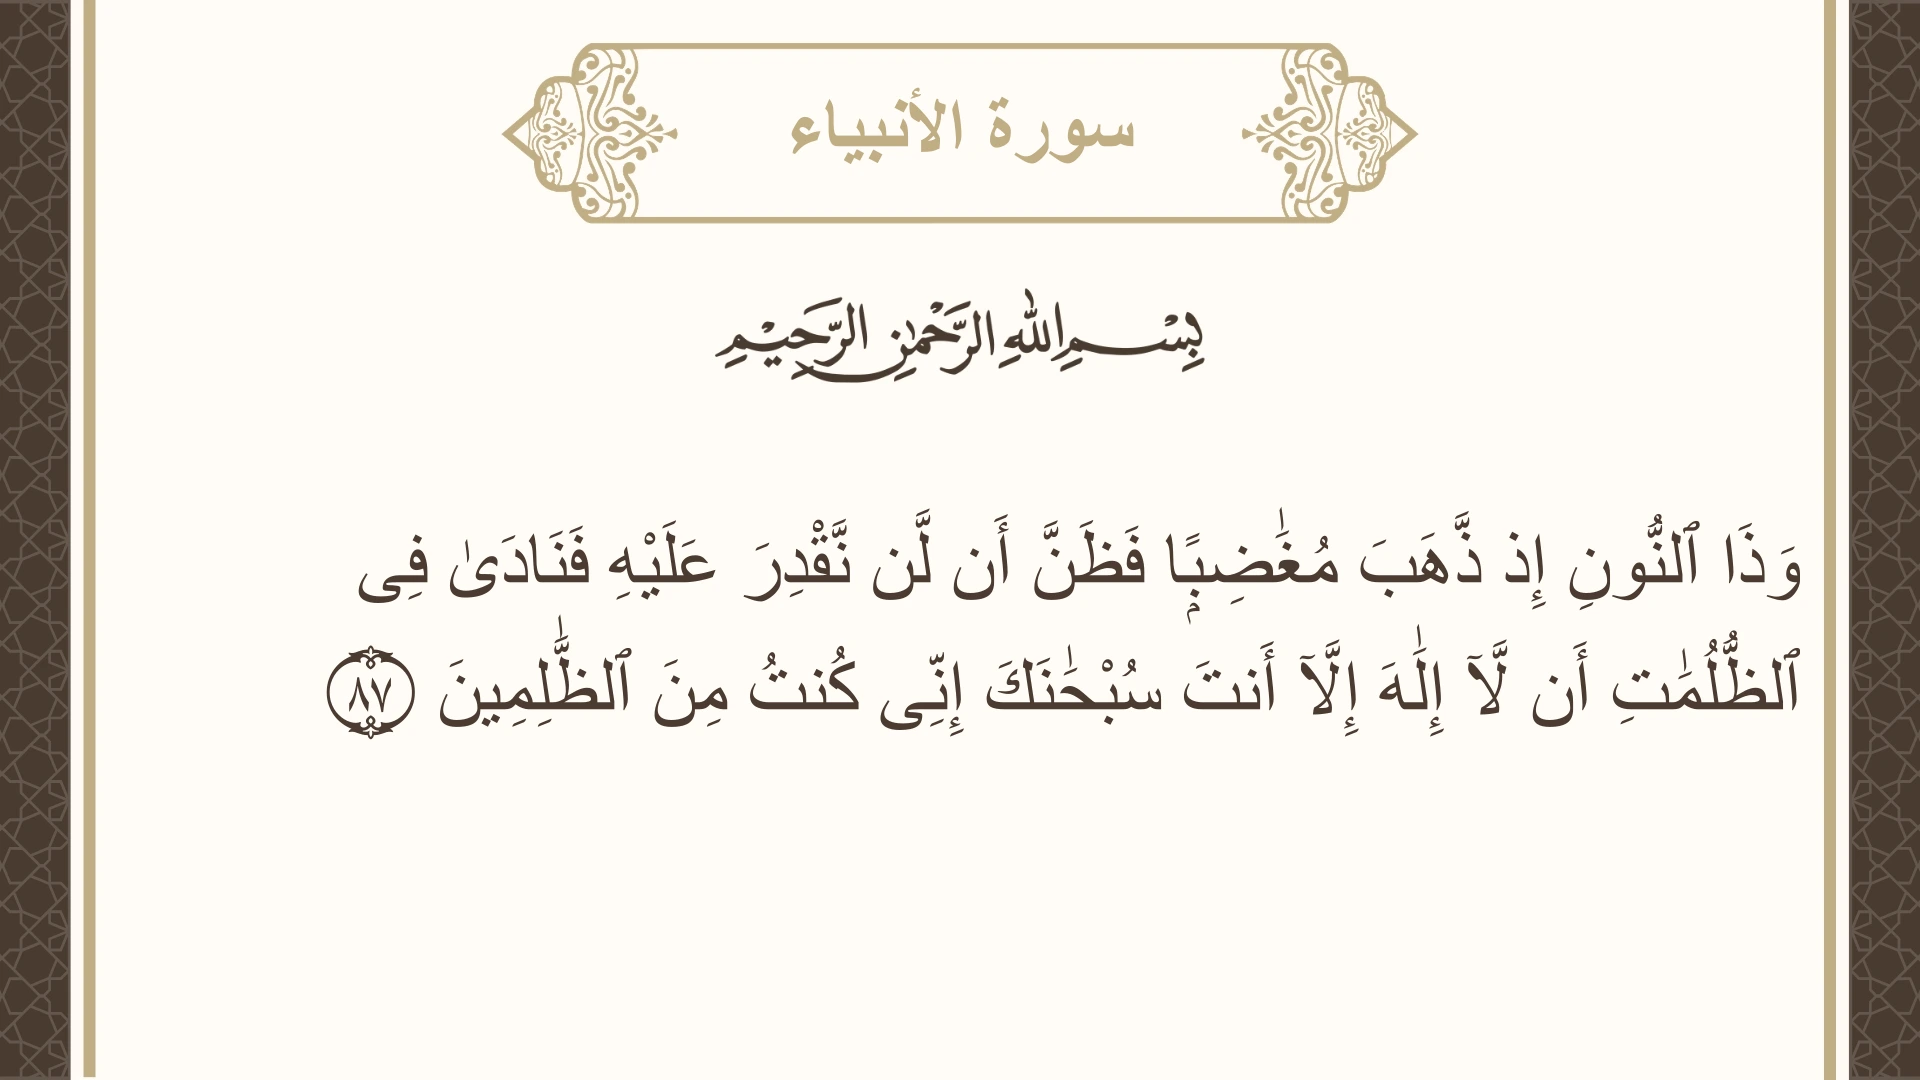 سورة الأنبياء
بِسْمِ اللهِ الرَّحْمٰنِ الرَّحِيْمِ
وَذَا ٱلنُّونِ إِذ ذَّهَبَ مُغَٰضِبًۭا فَظَنَّ أَن لَّن نَّقْدِرَ عَلَيْهِ فَنَادَىٰ فِى
ٱلظُّلُمَٰتِ أَن لَّآ إِلَٰهَ إِلَّآ أَنتَ سُبْحَٰنَكَ إِنِّى كُنتُ مِنَ ٱلظَّٰلِمِينَ ٨٧